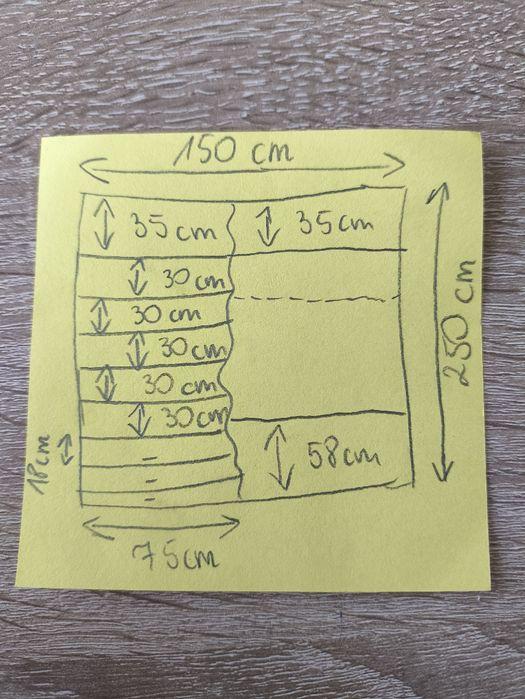 150 cm
35 cm
35 cm
30 cm
30 cm
30 cm
30 cm
30 cm
250 cm
18 cm
58 cm
75 cm